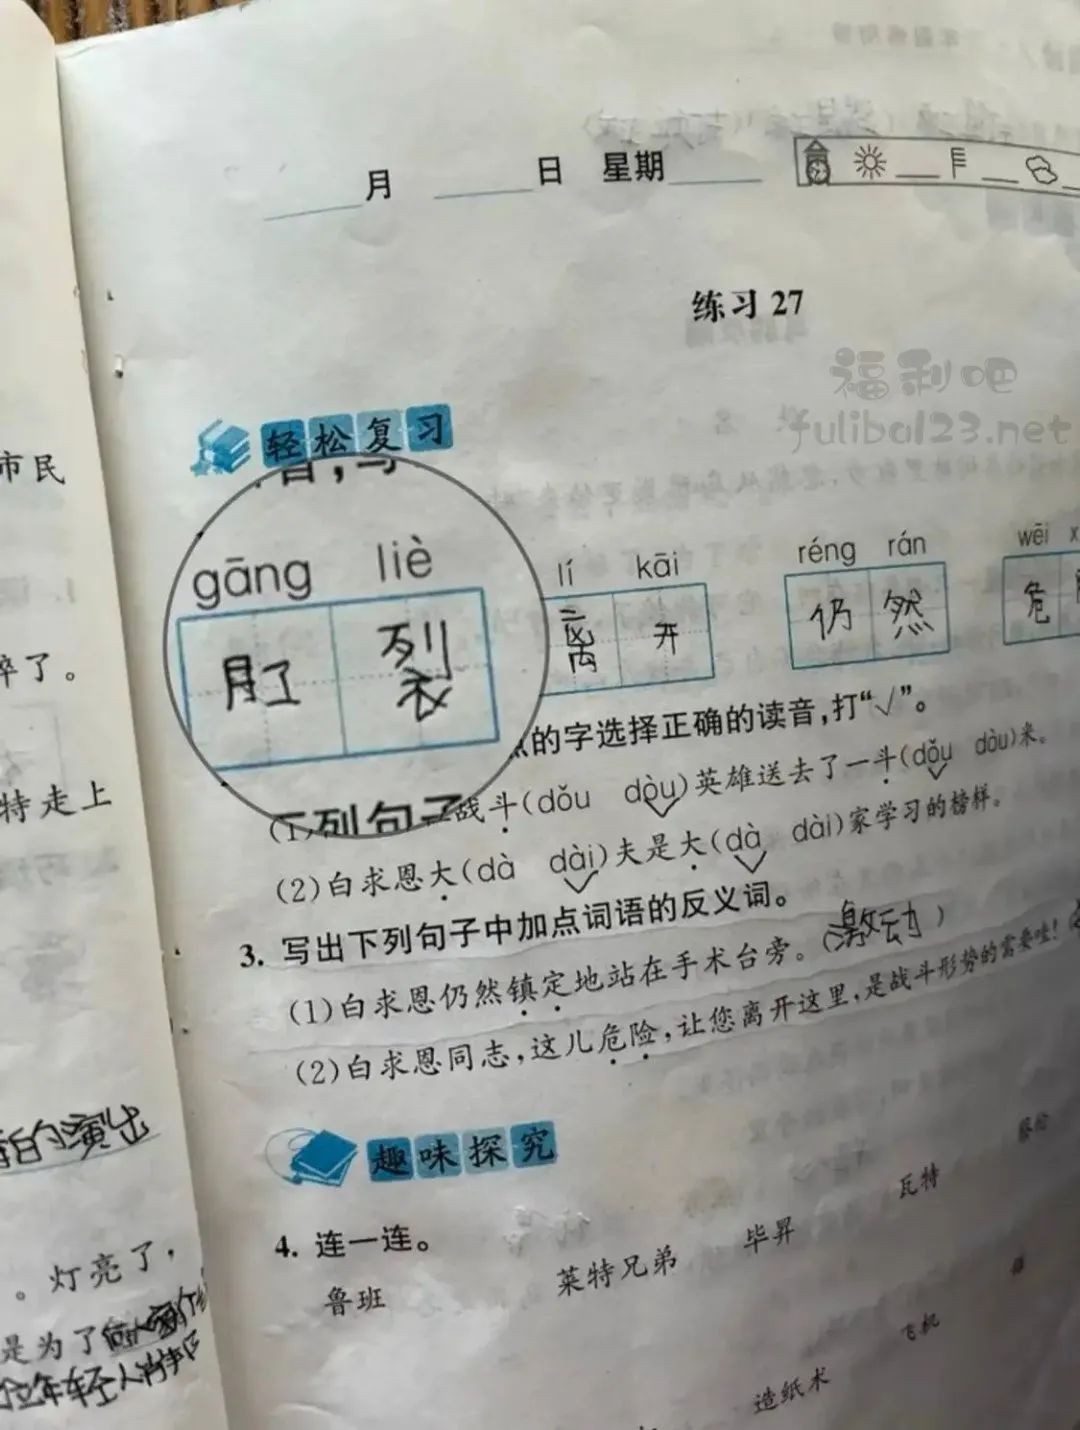 月 日 星期
练习 27
福利吧
fulibal23.net
轻松复习
gāng liè
肛 裂
lí kāi
离 开
réng rán
仍 然
wēi
危
的字选择正确的读音,打“√”。
(1) 战斗(dǒu dòu)英雄送去了一斗(dǒu dòu)米。
(2)白求恩大(dà dài)夫是大(dà dài)家学习的榜样。
3. 写出下列句子中加点词语的反义词。
(1)白求恩仍然镇定地站在手术台旁。(激动)
(2)白求恩同志,这儿危险,让您离开这里,是战斗形势的需要哇!
趣味探究
4. 连一连。
鲁班 莱特兄弟 毕昇 瓦特 蔡伦
造纸术 飞机
市民
了。
特走上
的演出
。灯亮了,
是为了